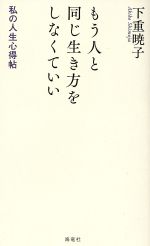 下重暁子
Akiko Shimoju
もう人と
同じ生き方を
しなくていい
私の人生心得帖
海竜社